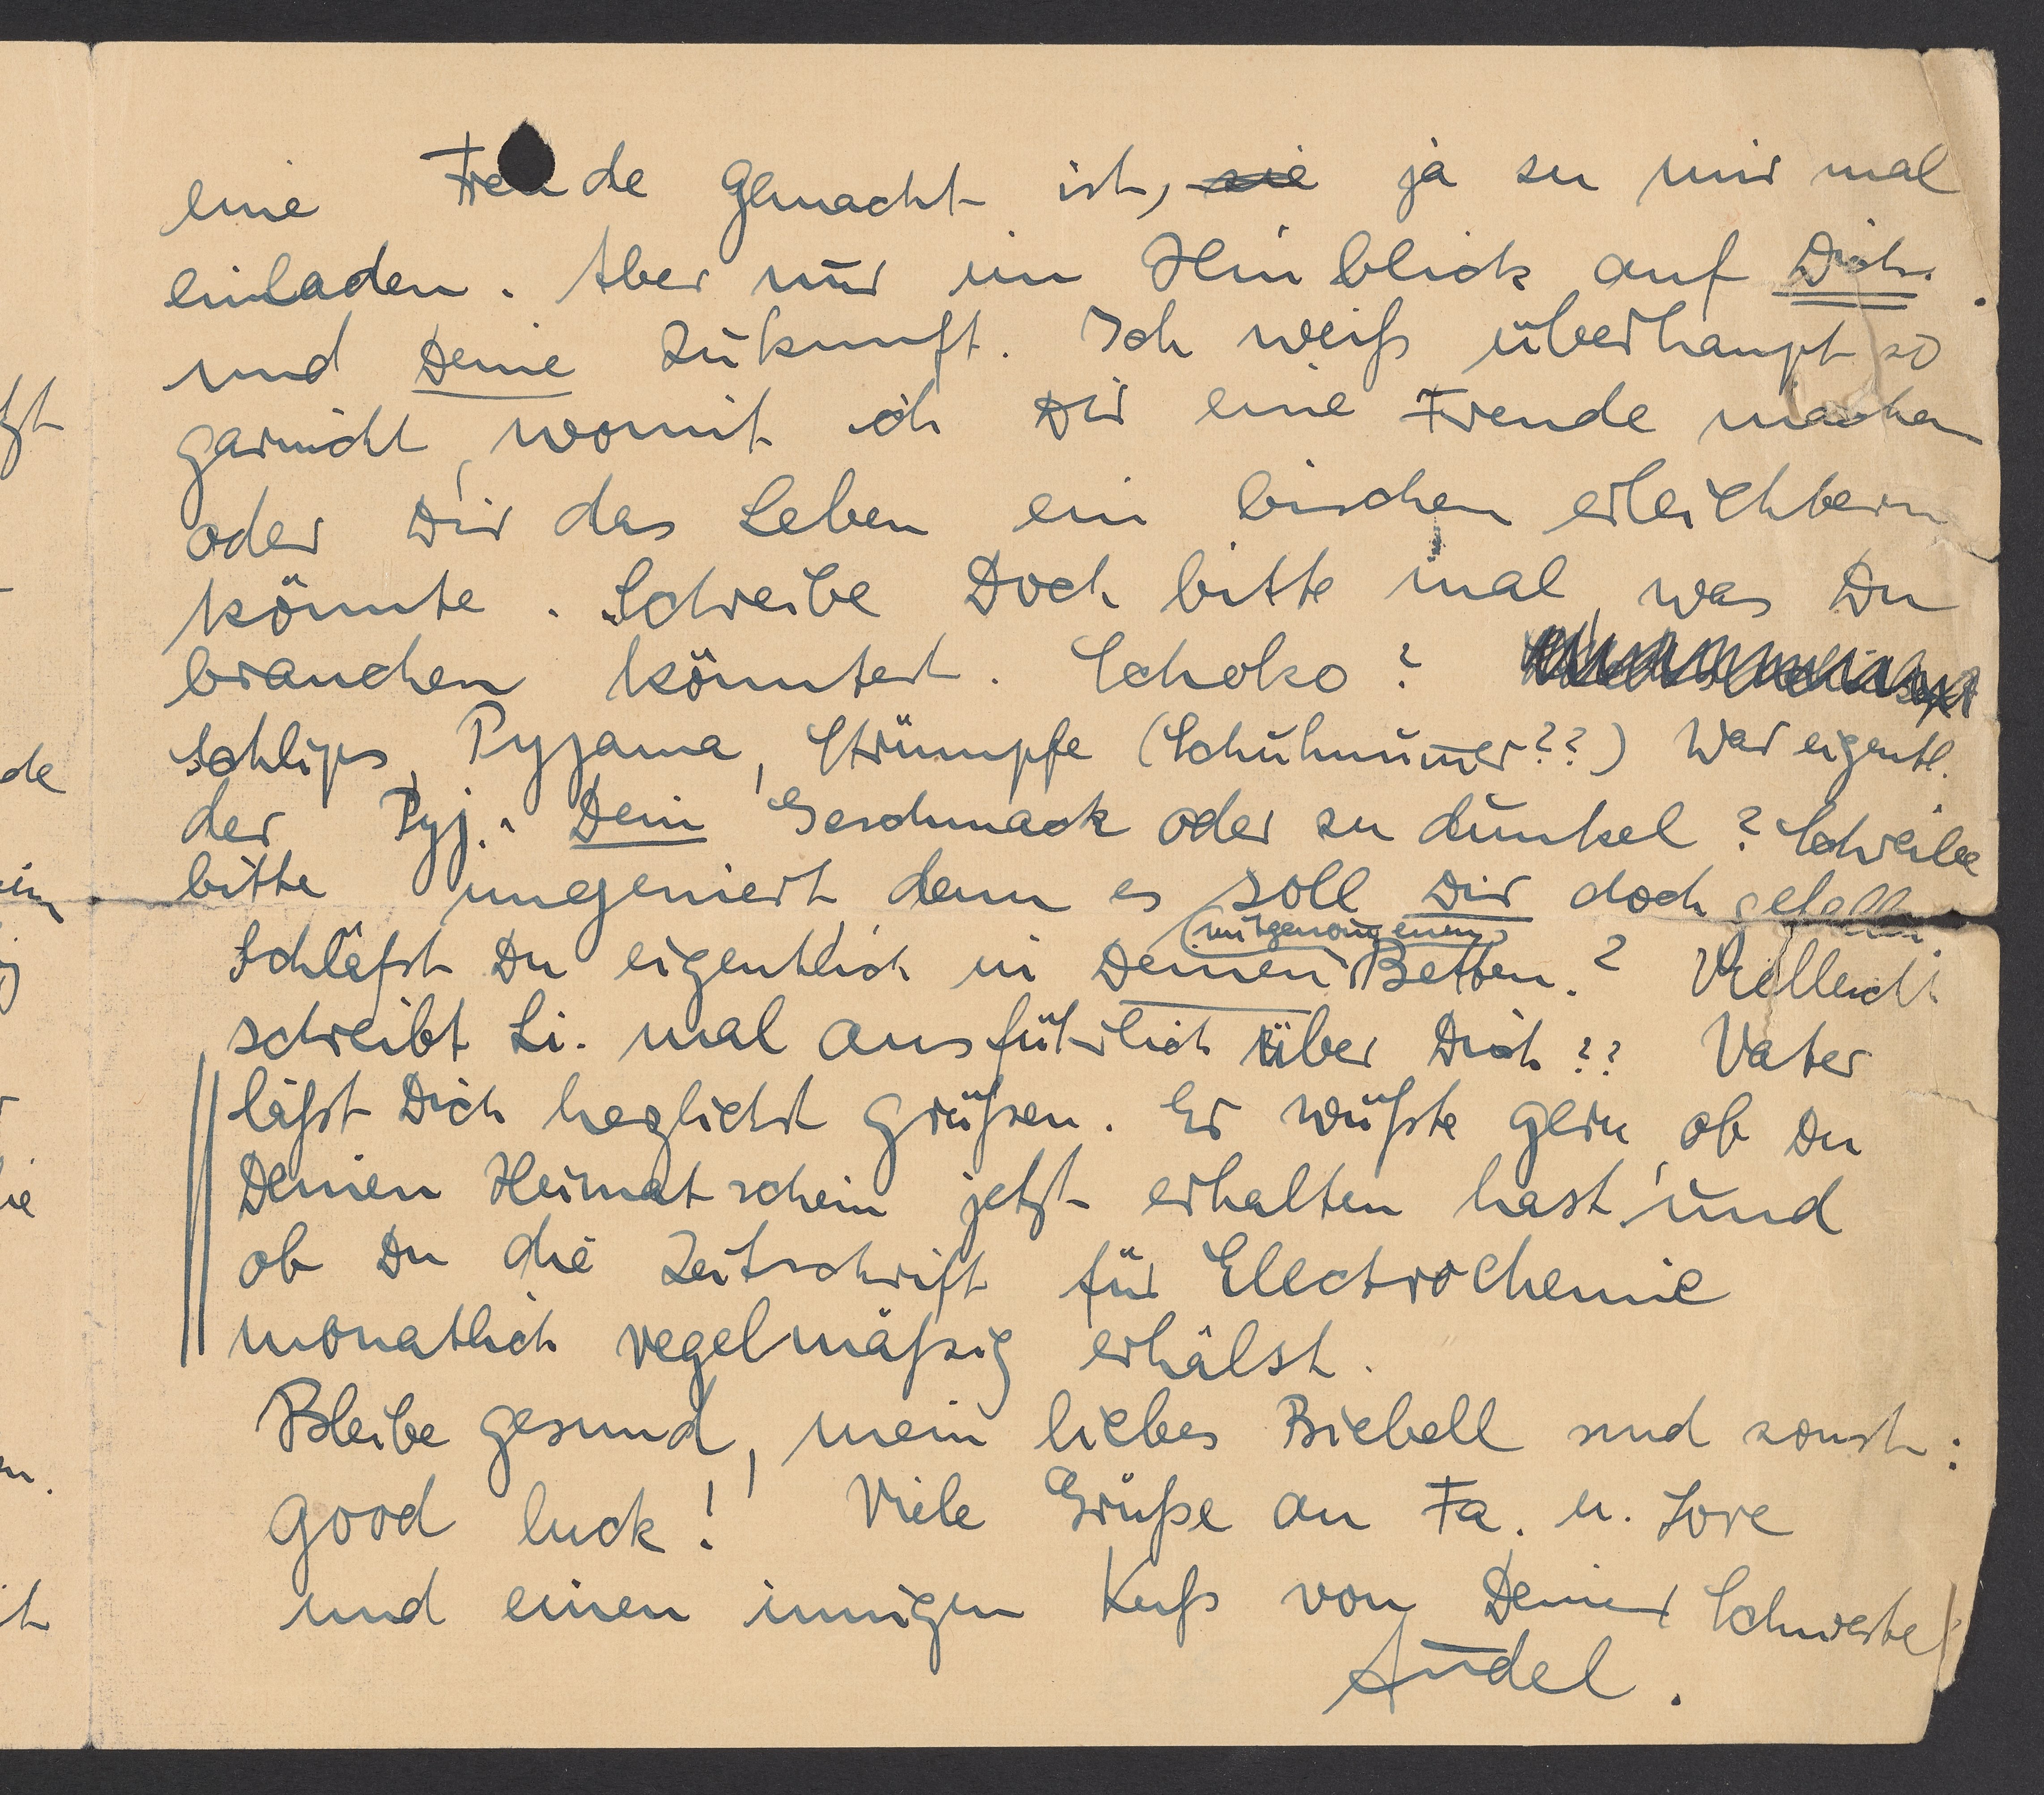 eine Freude gemacht ist, sie ja zu mir mal
einladen. Aber nur im Hinblick auf Dich
und Deine Zukunft. Ich weiß überhaupt so
garnicht, womit ich Dir eine Freude machen
oder Dir das Leben ein bischen erleichtern
könnte. Schreibe Doch bitte mal, was Du
brauchen könntest. Schoko?
Schlips, Pyjama, Strümpfe (Schuhnum̅er??) War eigentl.
der Pyj. Dein Geschmack oder zu dunkel? Schreibe
bitte ungeniert denn es soll Dir doch gefallen.
(mitgenom̅enen)
Schläfst Du eigentlich in Deinen Betten? Vielleicht
schreibt Li. mal ausführlich über Dich?? Vater
läßt Dich herzlichst grüßen. Er wüßte gern, ob Du
Deinen Heimatschein jetzt erhalten hast und
ob Du die Zeitschrift für Electrochemie
monatlich regelmäßig erhälst.
Bleibe gesund, mein liebes Biebell und sonst:
good luck! Viele Grüße an Fa. u. Lore
und einen innigen Kuß von Deiner Schwester
Andel.